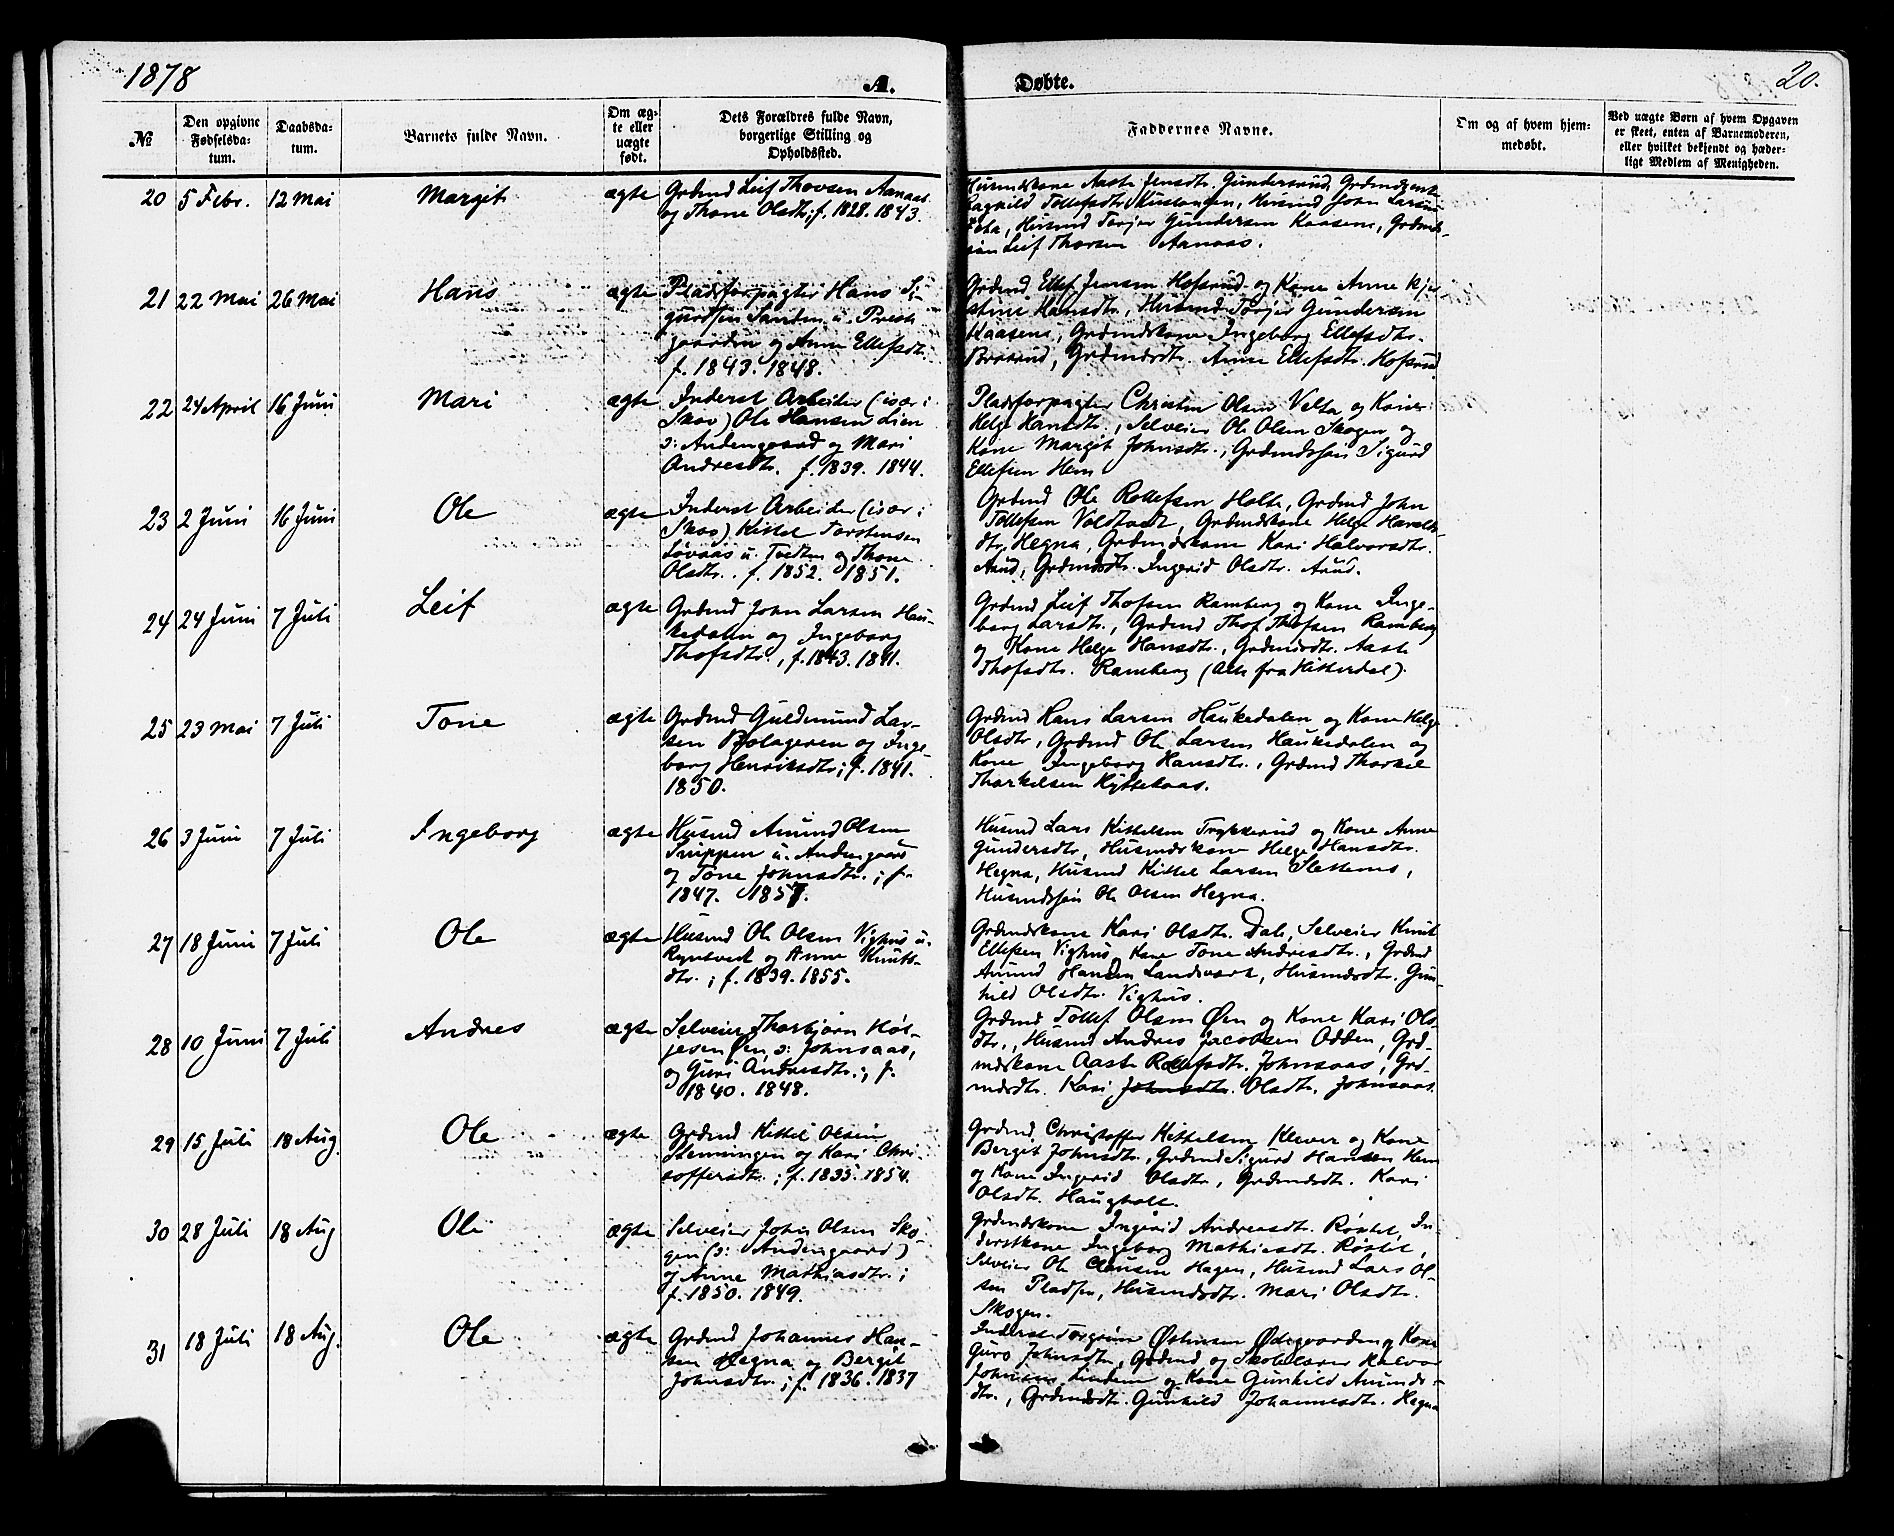 1878
A.
Døbte.
20.
№
Den opgivne Fødselsdatum.
Daabsdatum.
Barnets fulde Navn.
Om ægte eller uægte født.
Dets Forældres fulde Navn, borgerlige Stilling og Opholdssted.
Faddernes Navne.
Om og af hvem hjemmedøbt.
Ved uægte Børn af hvem Opgaven er skeet, enten af Barnemoderen, eller hvilket bekjendt og hæderligt Medlem af Menigheden.
20 5 Febr. 12 Mai Margit ægte
Grdmd Leif Thovsen Aanaas
og Thone Olsdtr; f. 1828. 1843.
Husmdskone Aaste Jensdtr. Gundersrud,
Ragnhild Tollefsdtr. Husmd John Larsen
Husmd Torjer Gundersen Kaasene, Grdmds-
søn Leif Thorsen Aanaas.
21 22 Mai 26 Mai Hans ægte
Pladsforpagter Hans Si-
gurdsen Sanden u. Prest-
gaarden og Anne Ellefsdtr.
f. 1843. 1848.
Grdmd Ellef Jensen Hofsrud og Kone Anne Kjer-
stine Hansdtr., Husmd Torjer Gundersen
Kaasene, Grdmdskone Ingeborg Ellefsdtr.
Grdmdsdtr. Anne Ellefsdtr. Hofsrud
22 24 April 16 Juni Mari ægte
Inderst Arbeider (især i
Skov) Ole Hansen Lien
o: Andengaard og Mari
Andresdtr. f. 1839. 1844.
Pladsforpagter Christen Olsen Velta og Kone
Helge Hansdtr., Selveier Ole Olsen Skogen og
Kone Margit Johnsdtr., Grdmdssøn Sigurd
Ellefsen Hem
23 2 Juni 16 Juni Ole ægte
Inderst Arbeider (især i
Skov) Kittel Torstensen
Løvaas u. Tvedten og Thone
Olsdtr. f. 1852. 1851.
Grdmd Ole Rollefsen Holte, Grdmd John
Tollefsen Voldstadt, Grdmdskone Helge Harolds-
dtr. Hegna, Grdmdskone Kari Halvorsdtr.
Aasd, Grdmdsdtr. Ingerid Olsdtr. Aasd.
24 24 Juni 7 Juli Leif ægte
Grdmd John Larsen Hau-
kedalen og Ingeborg
Thofsdtr., f. 1843. 1841.
Grdmd Leif Thofsen Ramberg og Kone Inge-
borg Larsdtr., Grdmd Thof Thofsen Ramberg
og Kone Helge Hansdtr., Grdmdsdtr. Aaste
Thofsdtr. Ramberg (Alle fra Hitterdal).
25 23 Mai 7 Juli Tone ægte
Grdmd Guldmund Lar-
sen Bolageren og Inge-
borg Henriksdtr; f. 1841.
1850.
Grdmd Hans Larsen Haukedalen og Kone Helge
Olsdtr, Grdmd Ole Larsen Haukedalen og
Kone Ingeborg Hansdtr., Grdmd Thorkil
Thorkelsen Hyttekaas.
26 3 Juni 7 Juli Ingeborg ægte
Husmd Amund Olsen
Snippen u. Andengaard
og Tone Johnsdtr.; f.
1847. 1857.
Husmd Lars Kittelsen Trykkerud og Kone Anne
Gundersdtr, Husmdskone Helge Hansdtr.
Hegna, Husmd Kittel Larsen Slettemo,
Husmdssøn Ole Olsen Hegna.
27 18 Juni 7 Juli Ole ægte
Husmd Ole Olsen Vighus u.
Ryntveit og Anne Knuts-
dtr.; f. 1839. 1855.
Grdmdskone Kari Olsdtr. Dale, Selveier Knut
Ellefsen Vighus, Kone Tone Andresdtr., Grdmd
Amund Hansen Landsverk, Husmdsdtr. Gun-
hild Olsdtr. Vighus.
28 10 Juni 7 Juli Andres ægte
Selveier Thorbjørn Høl-
jesen Øen, o: Johnsaas,
og Guri Andresdtr.; f.
1840. 1848.
Grdmd Tollef Olsen Øen og Kone Kari Ols-
dtr., Husmd Andres Jacobsen Odden, Grd-
mdskone Aaste Rollefsdtr. Johnsaas, Grd-
mdsdtr. Kari Johnsdtr. Olsdtr. Johnsaas.
29 15 Juli 18 Aug. Ole ægte
Grdmd Kittel Olsen
Stenningen og Kari Chri-
stoffersdtr.; f. 1835. 1854.
Grdmd Christoffer Kittelsen Klever og Kone
Bergit Johnsdtr., Grdmd Sigurd Hansen Hem
og Kone Ingerid Olsdtr, Grdmdsdtr. Kari
Olsdtr. Haugholt.
30 28 Juli 18 Aug Ole ægte
Selveier John Olsen Sko-
gen (o: Andengaard)
og Anne Mathiasdtr.;
f. 1850. 1849.
Grdmdskone Ingerid Andresdtr. Røstet, In-
derstkone Ingeborg Mathisdtr. Røstet,
Selveier Ole Clausen Hagen, Husmd Lars Ol-
sen Pladsen, Husmdsdtr. Mari Olsdtr.
Skogen.
31 18 Juli 18 Aug. Ole ægte
Grdmd Johannes Han-
sen Hegna og Bergit
Johnsdtr.; f. 1836. 1837
Inderst Torgrim Østensen Ødegaarden og Kone
Guro Johnsdtr, Grdmd og Skolelærer Halvor
Johnsen Linden og Kone Gunhild Amunds-
dtr., Grdmdsdtr. Gunhild Johannesdtr. Hegna